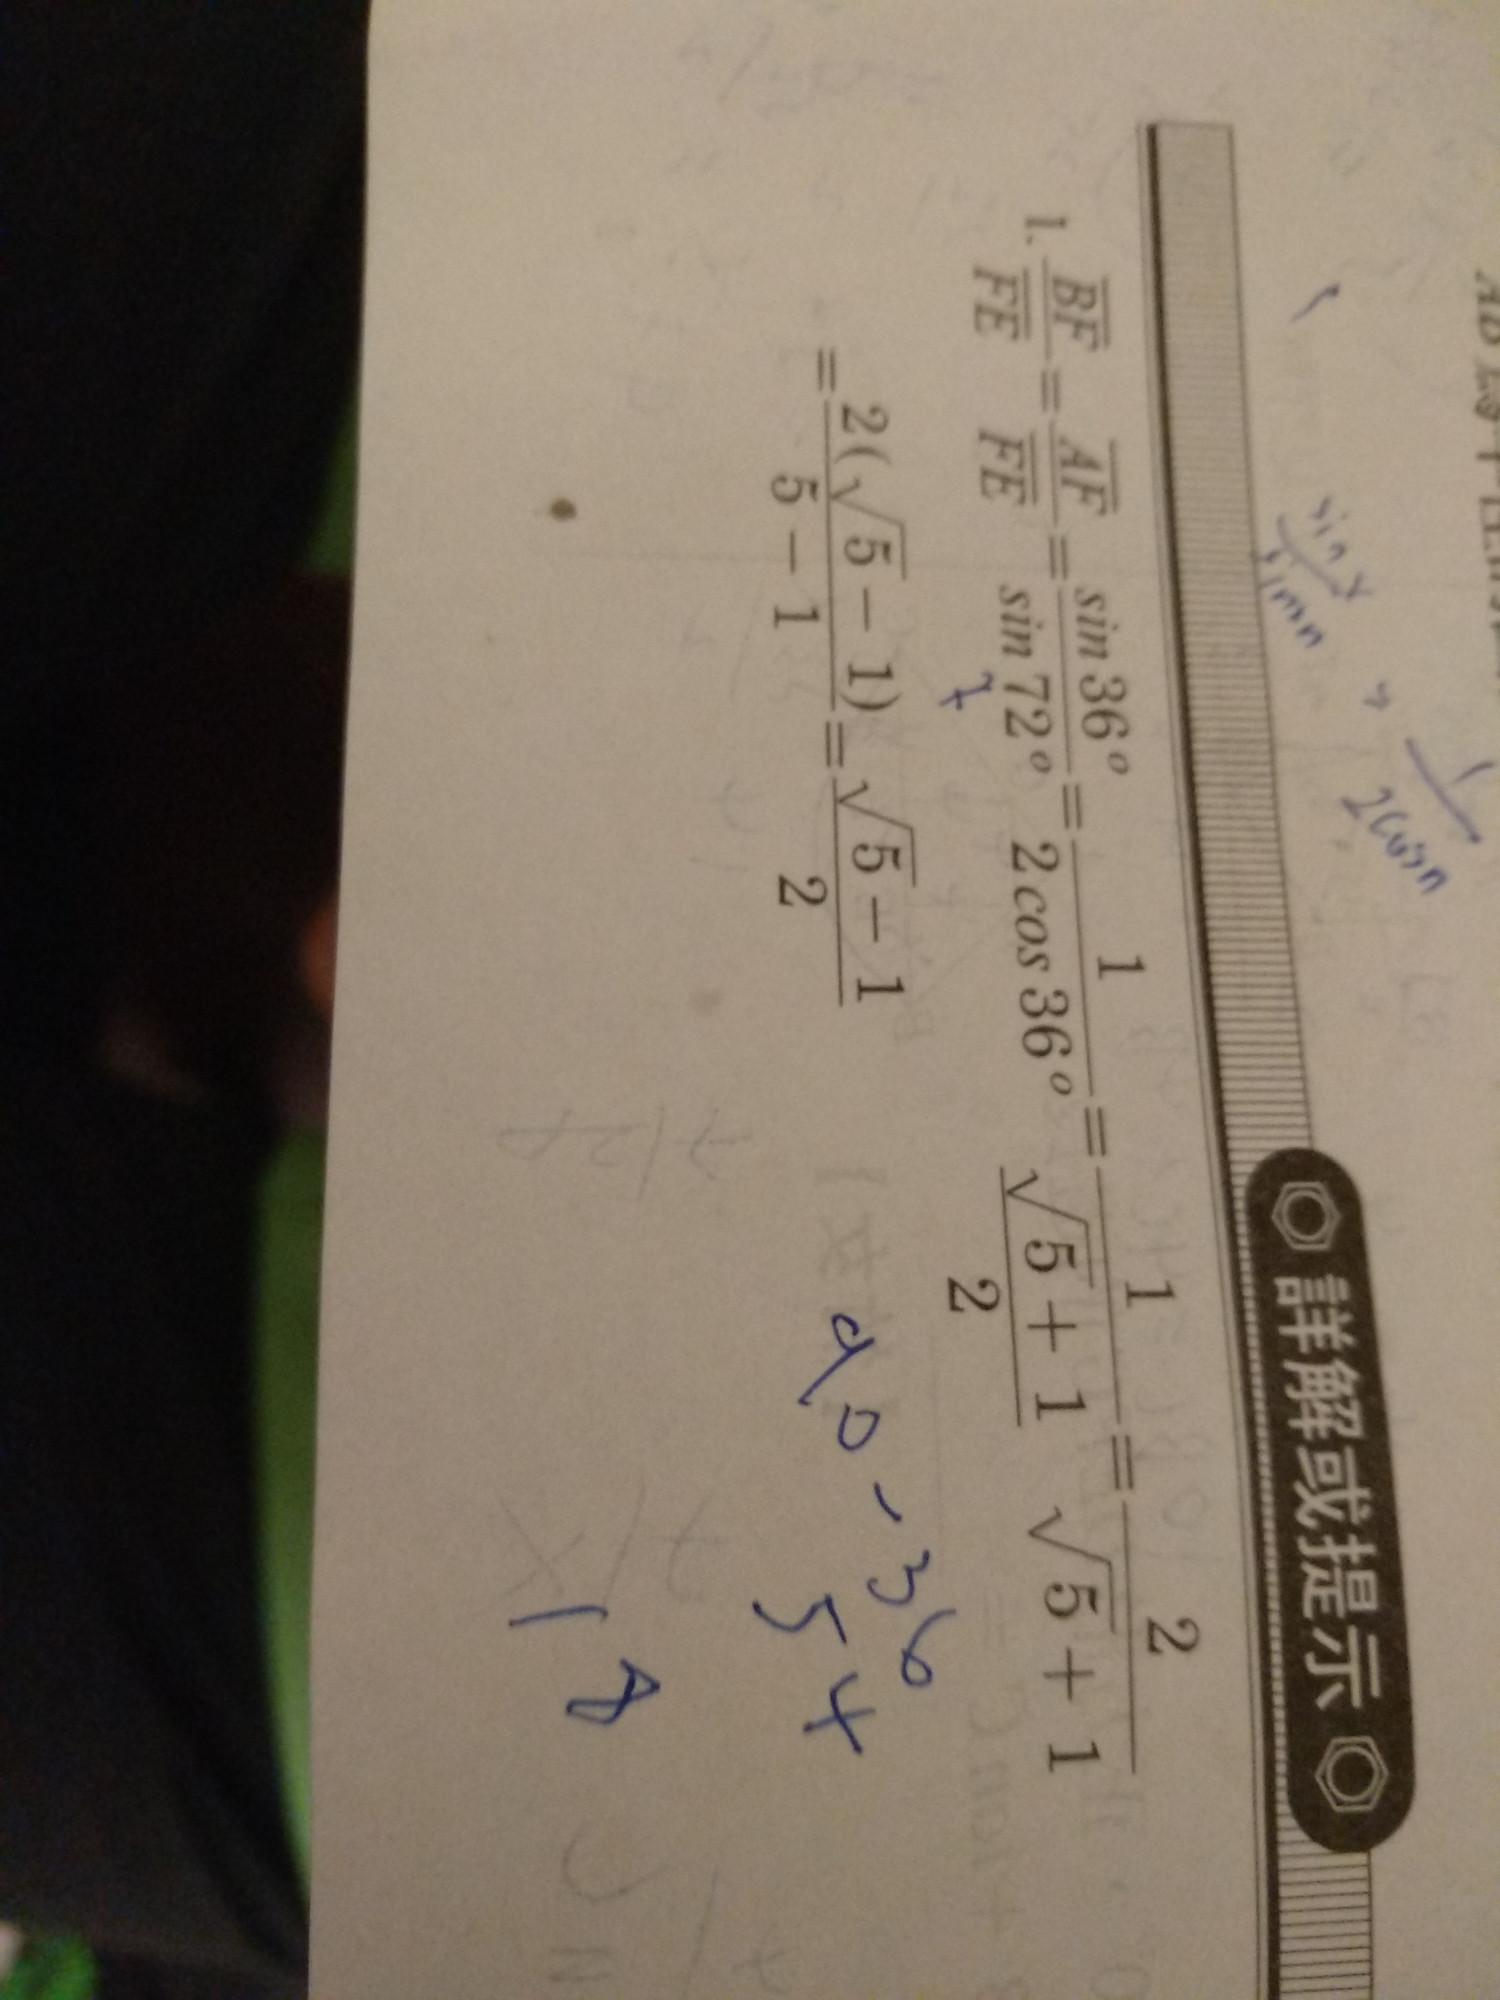 sin x
sin n → 1
2cosn
詳解或提示
1. BF/FE = AF/FE = sin 36°/sin 72° = 1/(2 cos 36°) = 1/((√5 + 1)/2) = 2/(√5 + 1)
= 2(√5 − 1)/(5 − 1) = (√5 − 1)/2
90 - 36
54
18